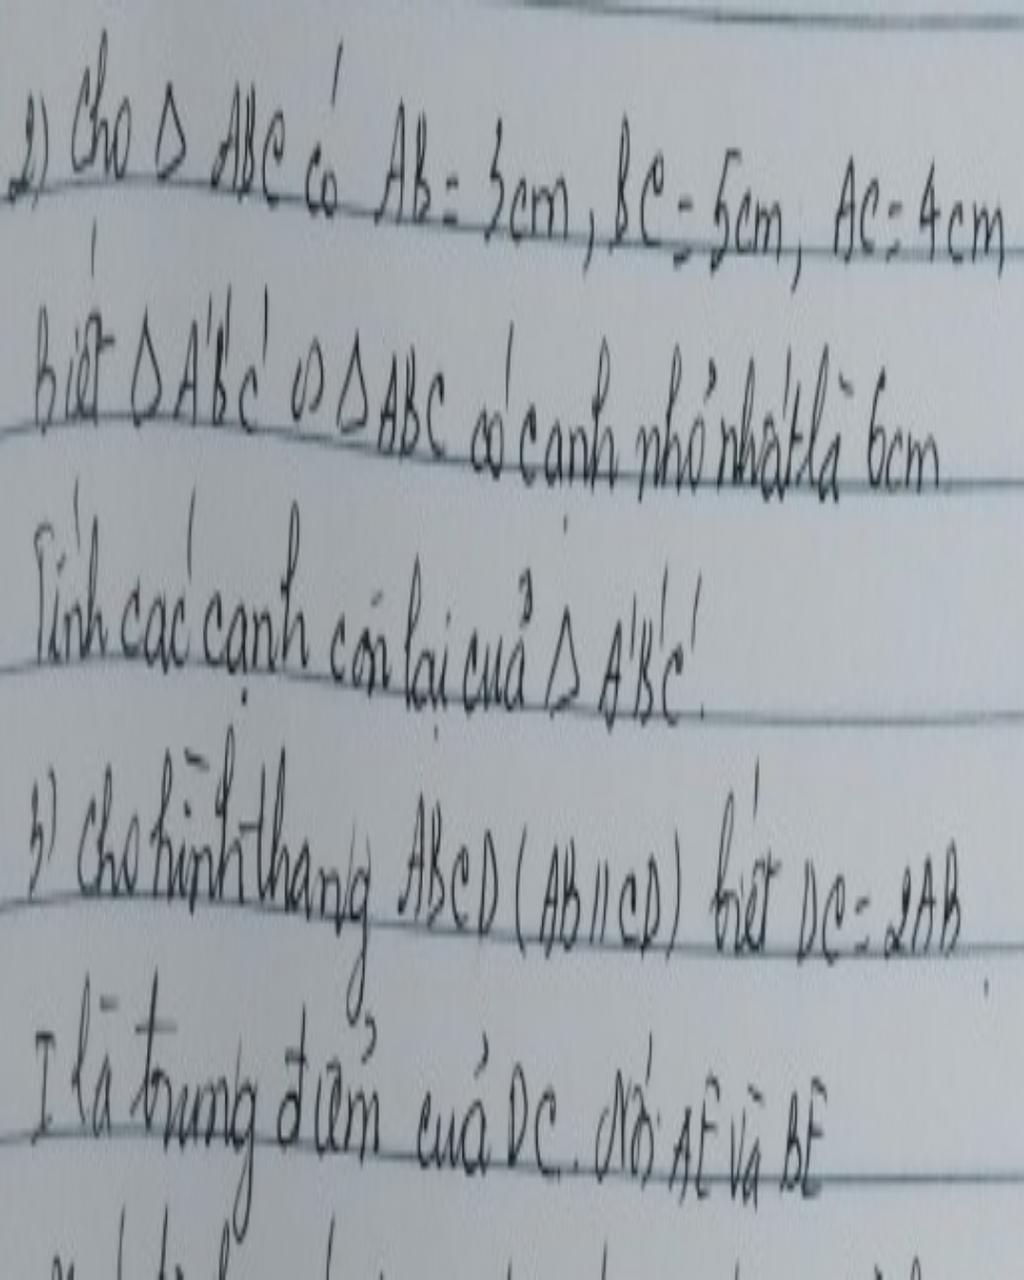 2) Cho Δ ABC có AB = 3cm, BC = 5cm, AC = 4cm
Biết Δ A'B'C' ∽ Δ ABC có cạnh nhỏ nhất là 6cm
Tính các cạnh còn lại của Δ A'B'C'.
3) Cho hình thang ABCD (AB // CD) biết DC = 2AB.
I là trung điểm của DC. Nối AE và BE